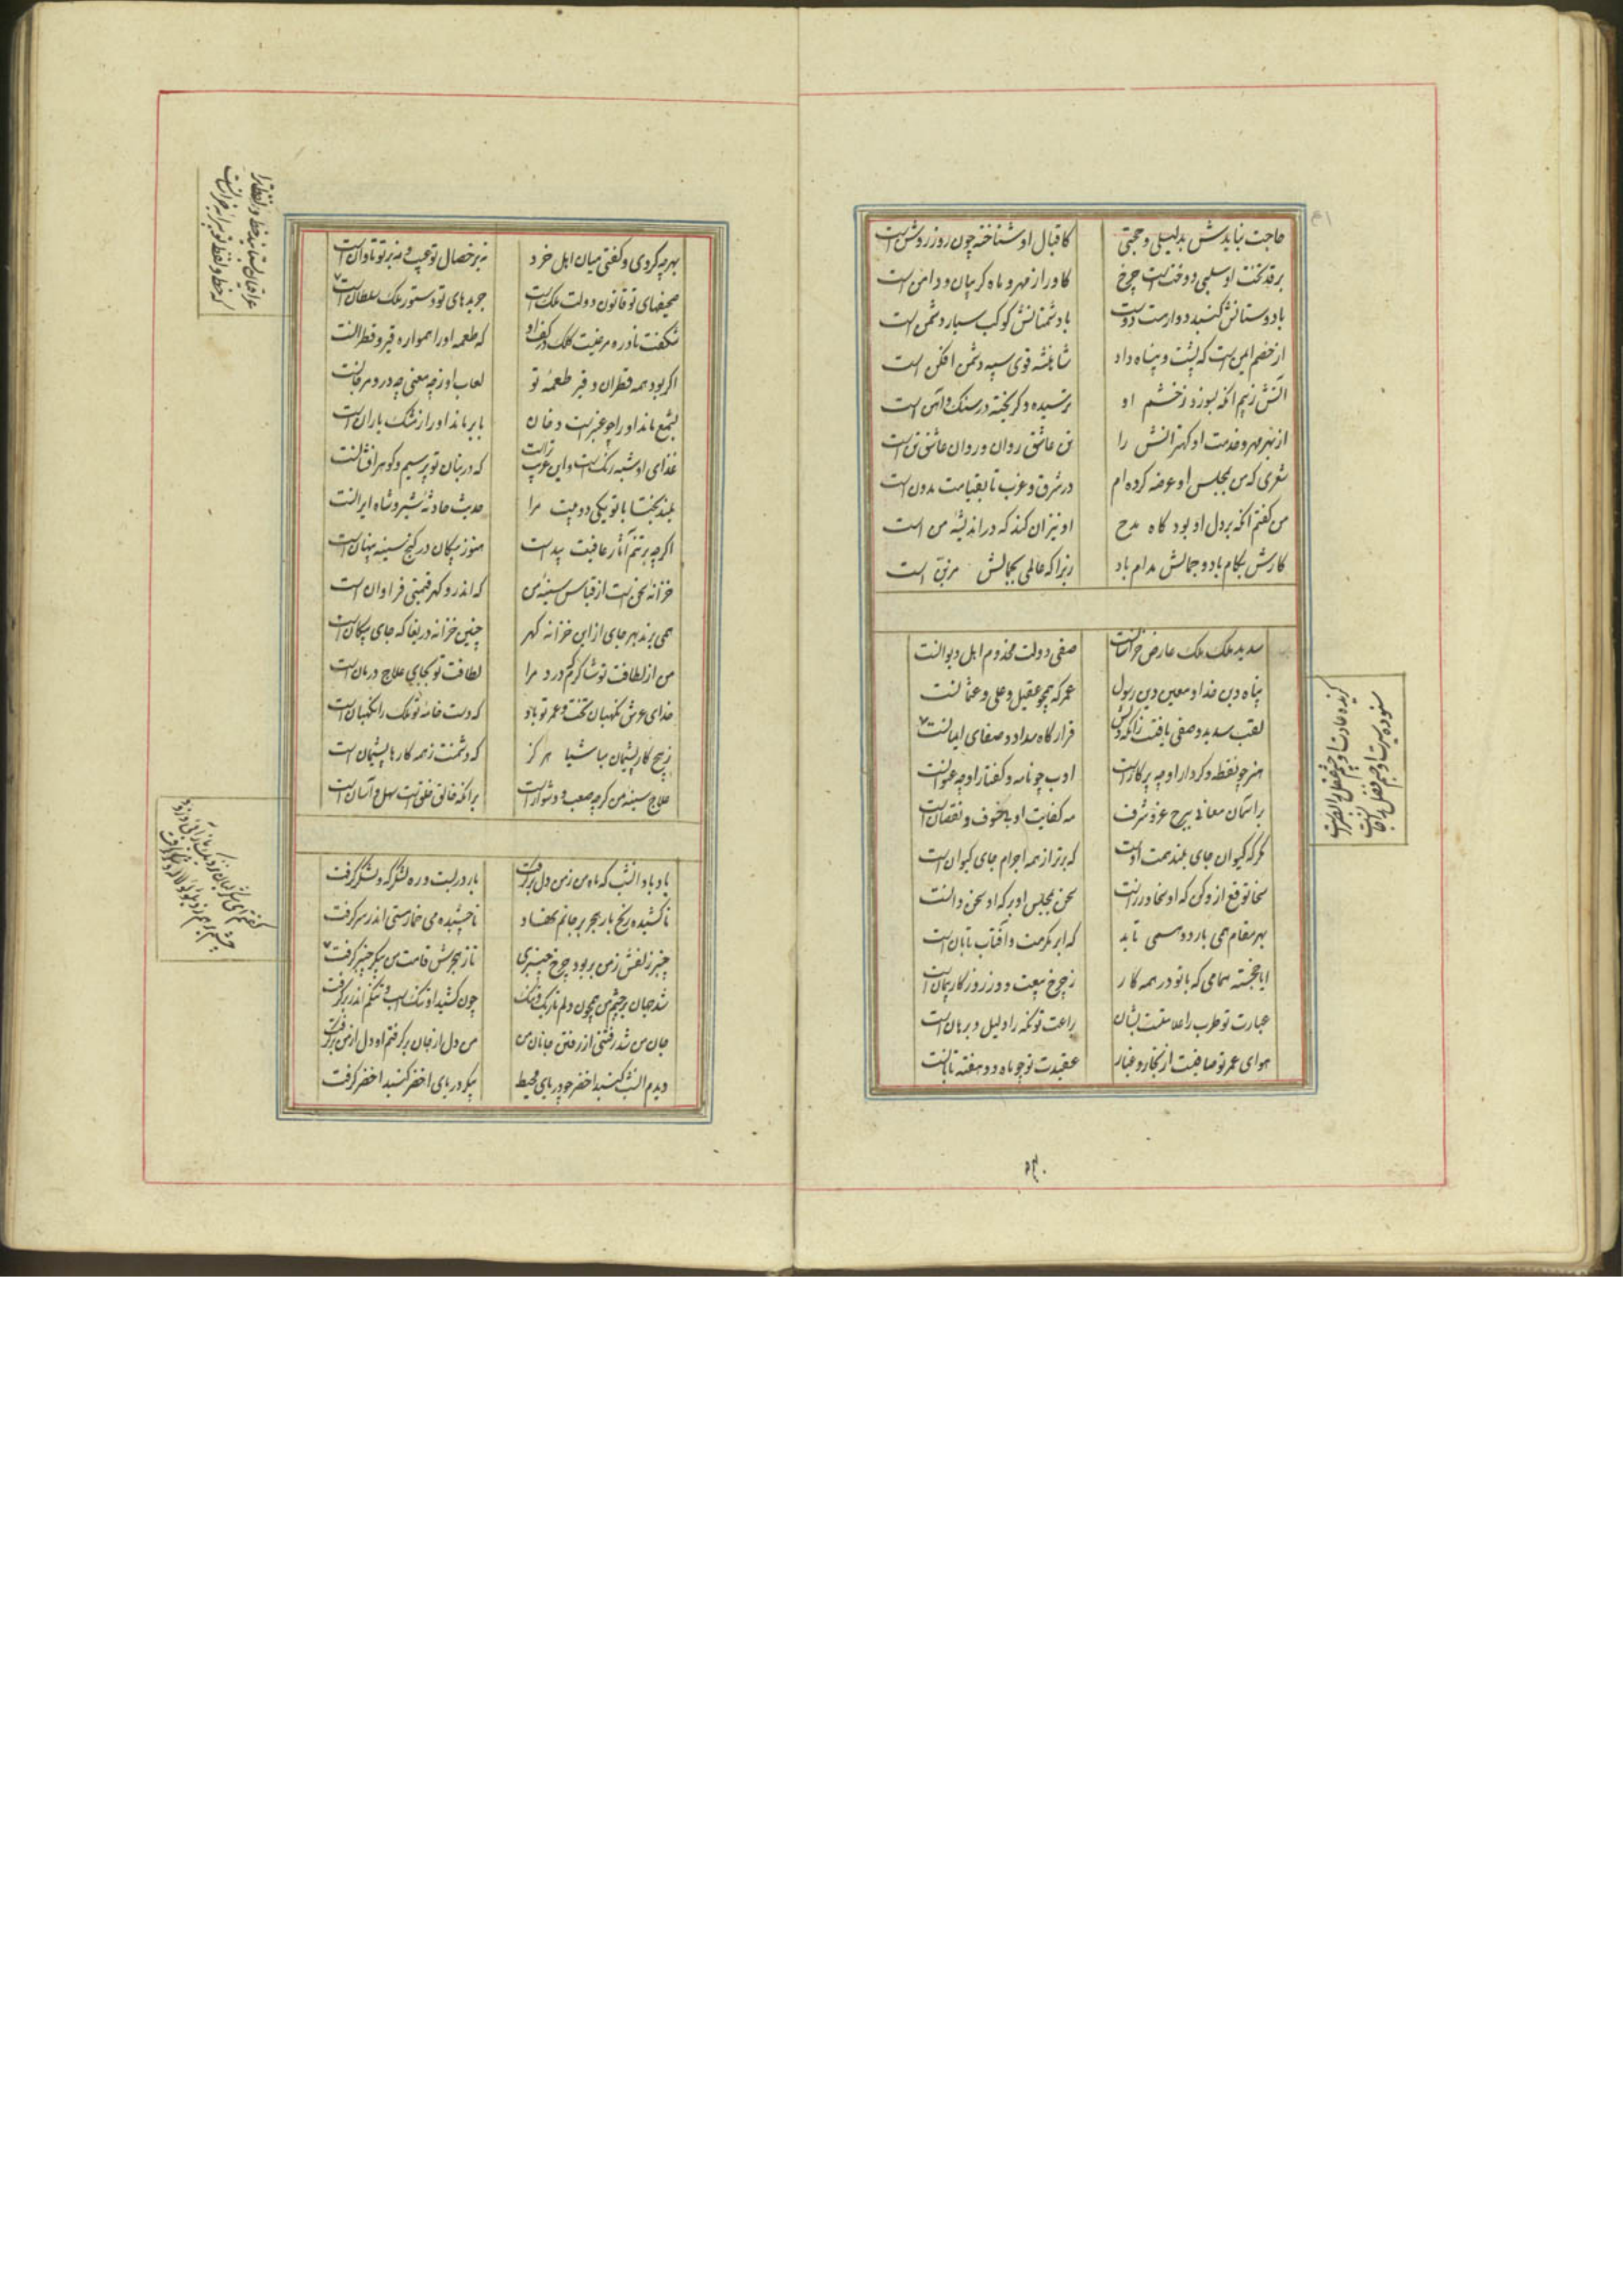 حاجت نیایدش بدلیلی و حجتی
کاقبال او شناخته چون روز روشن است
برقد بخت او سلبی دوخت است چرخ
کاورا ز مهر و ماه گریبان و دامن است
با دوستانش گنبد دوار هست دوست
با دشمنانش کوکب سیار دشمن است
از خصم ایمن است که پشت و پناه داد
شاهنشه قوی سپه دشمن افکن است
آتش ز بیم آنکه بسوزد ز خشم او
ترسیده و گریخته در سنگ و آهن است
از بهر مهر و خدمت او کهترانش را
تن عاشق روان و روان عاشق تن است
شعری که من بمجلس او عرضه کرده ام
در شرق و غرب تا بقیامت مدون است
من گفتم آنکه بر دل او بود گاه مدح
او نیز آن کند که در اندیشهٔ من است
کارش بکام باد و جمالش مدام باد
زیرا که عالمی بجمالش مزین است
سدید ملک ملک عارض خراسانست
صفی دولت مخدوم اهل دیوانست
پناه دین خدا و معین دین رسول
عمر که همچو عقیل و علی و عثمانست
لقب سدید و صفی یافت زانکه دلش
قرارگاه سداد و صفای ایمانست
هنر چو نقطه و کردار او چو پرکارست
ادب چو نامه و گفتار او چو عنوانست
بر آسمان معانی ببرج عز و شرف
مه کفایت او بی خوف و نقصان است
مگر که کیوان جای بلند همت اوست
که برتر از همه اجرام جای کیوان است
سخا توقع ازو کن که او سخا ورزست
سخن بمجلس او بر که او سخن دانست
بهر مقام همی بارد و همی تابد
که ابر مکرمت و آفتاب تابان است
ایا خجسته همامی که با تو در همه کار
ز چرخ بیعت و وز روزگار پیمان است
عبارت تو طرب را علامتست و نشان
براعت تو نکت را دلیل و برهان است
هوای عمر تو صافیست از بخار و غبار
عقیدت تو چو ماه دو هفته تابانست
ستوده سیرت او جسم فضل را جانست
گزیده عادت او چشم عقل را بصرست
بهر چه کردی و گفتی میان اهل خرد
نه بر خصال تو عیب و نه بر تو تاوان است
صحیفهای تو قانون دولت ملک است
جریدهای تو دستور ملک سلطان است
شگفت نادره مرغیست کلک در کف او
که طعمه او را همواره قیر و قطرانست
اگر بود همه قطران و قیر طعمهٔ تو
لعاب او ز چه معنی چو در و مرجانست
بشمع ماند او را چو عنبر است دخان
بابر ماند او را ز مشک باران است
غذای او شبه رنگ است و این عجب تر از آنست
که در بنان تو پر سیم و گوهر افشانست
بلند بختا با تو یکی دو بیت مرا
حدیث حادثهٔ شیر و شاه ایرانست
اگرچه بر تنم آثار عافیت پیداست
هنوز پیکان در کنج سینه پنهان است
خزانهٔ سخن است از قیاس سینهٔ من
که اندرو گهر قیمتی فراوان است
همی برند بهر جای ازین خزانه گهر
چنین خزانه دریغا که جای پیکان است
من از لطافت تو شاکرم که درد مرا
لطافت تو بجای علاج و درمان است
خدای عرش نگهبان بخت و عمر تو باد
که دست خامهٔ تو ملک را نگهبان است
ز هیچ کار پشیمان مباشیا هرگز
که دشمنت ز همه کارها پشیمان است
علاج سینهٔ من گرچه صعب و دشوار است
بر آنکه خالق خلق است سهل و آسان است
عراقیان بستانند خط و لفظ ترا
که خط و لفظ تو پیرایهٔ خراسانست
یاد باد آنشب که ماه من ز من دل برگرفت
بار در بست و ره لشکرگه و لشکر گرفت
ناکشیده رنج بار هجر بر جانم نهاد
ناچشیده می خمار مستی اندر سر گرفت
چنبر زلفش ز من بربود چرخ چنبری
تا ز هجرش قامت من پیکر چنبر گرفت
شد جهان بر چشم من همچون دلم تاریک و تنگ
چون کشید او تنگ اسب و تنگم اندر بر گرفت
جان من شد رفتنی از رفتن جانان من
من دل از جان برگرفتم او دل از من برگرفت
دیدم آنشب گنبد اخضر چو دریای محیط
پیکر دریای اخضر گنبد اخضر گرفت